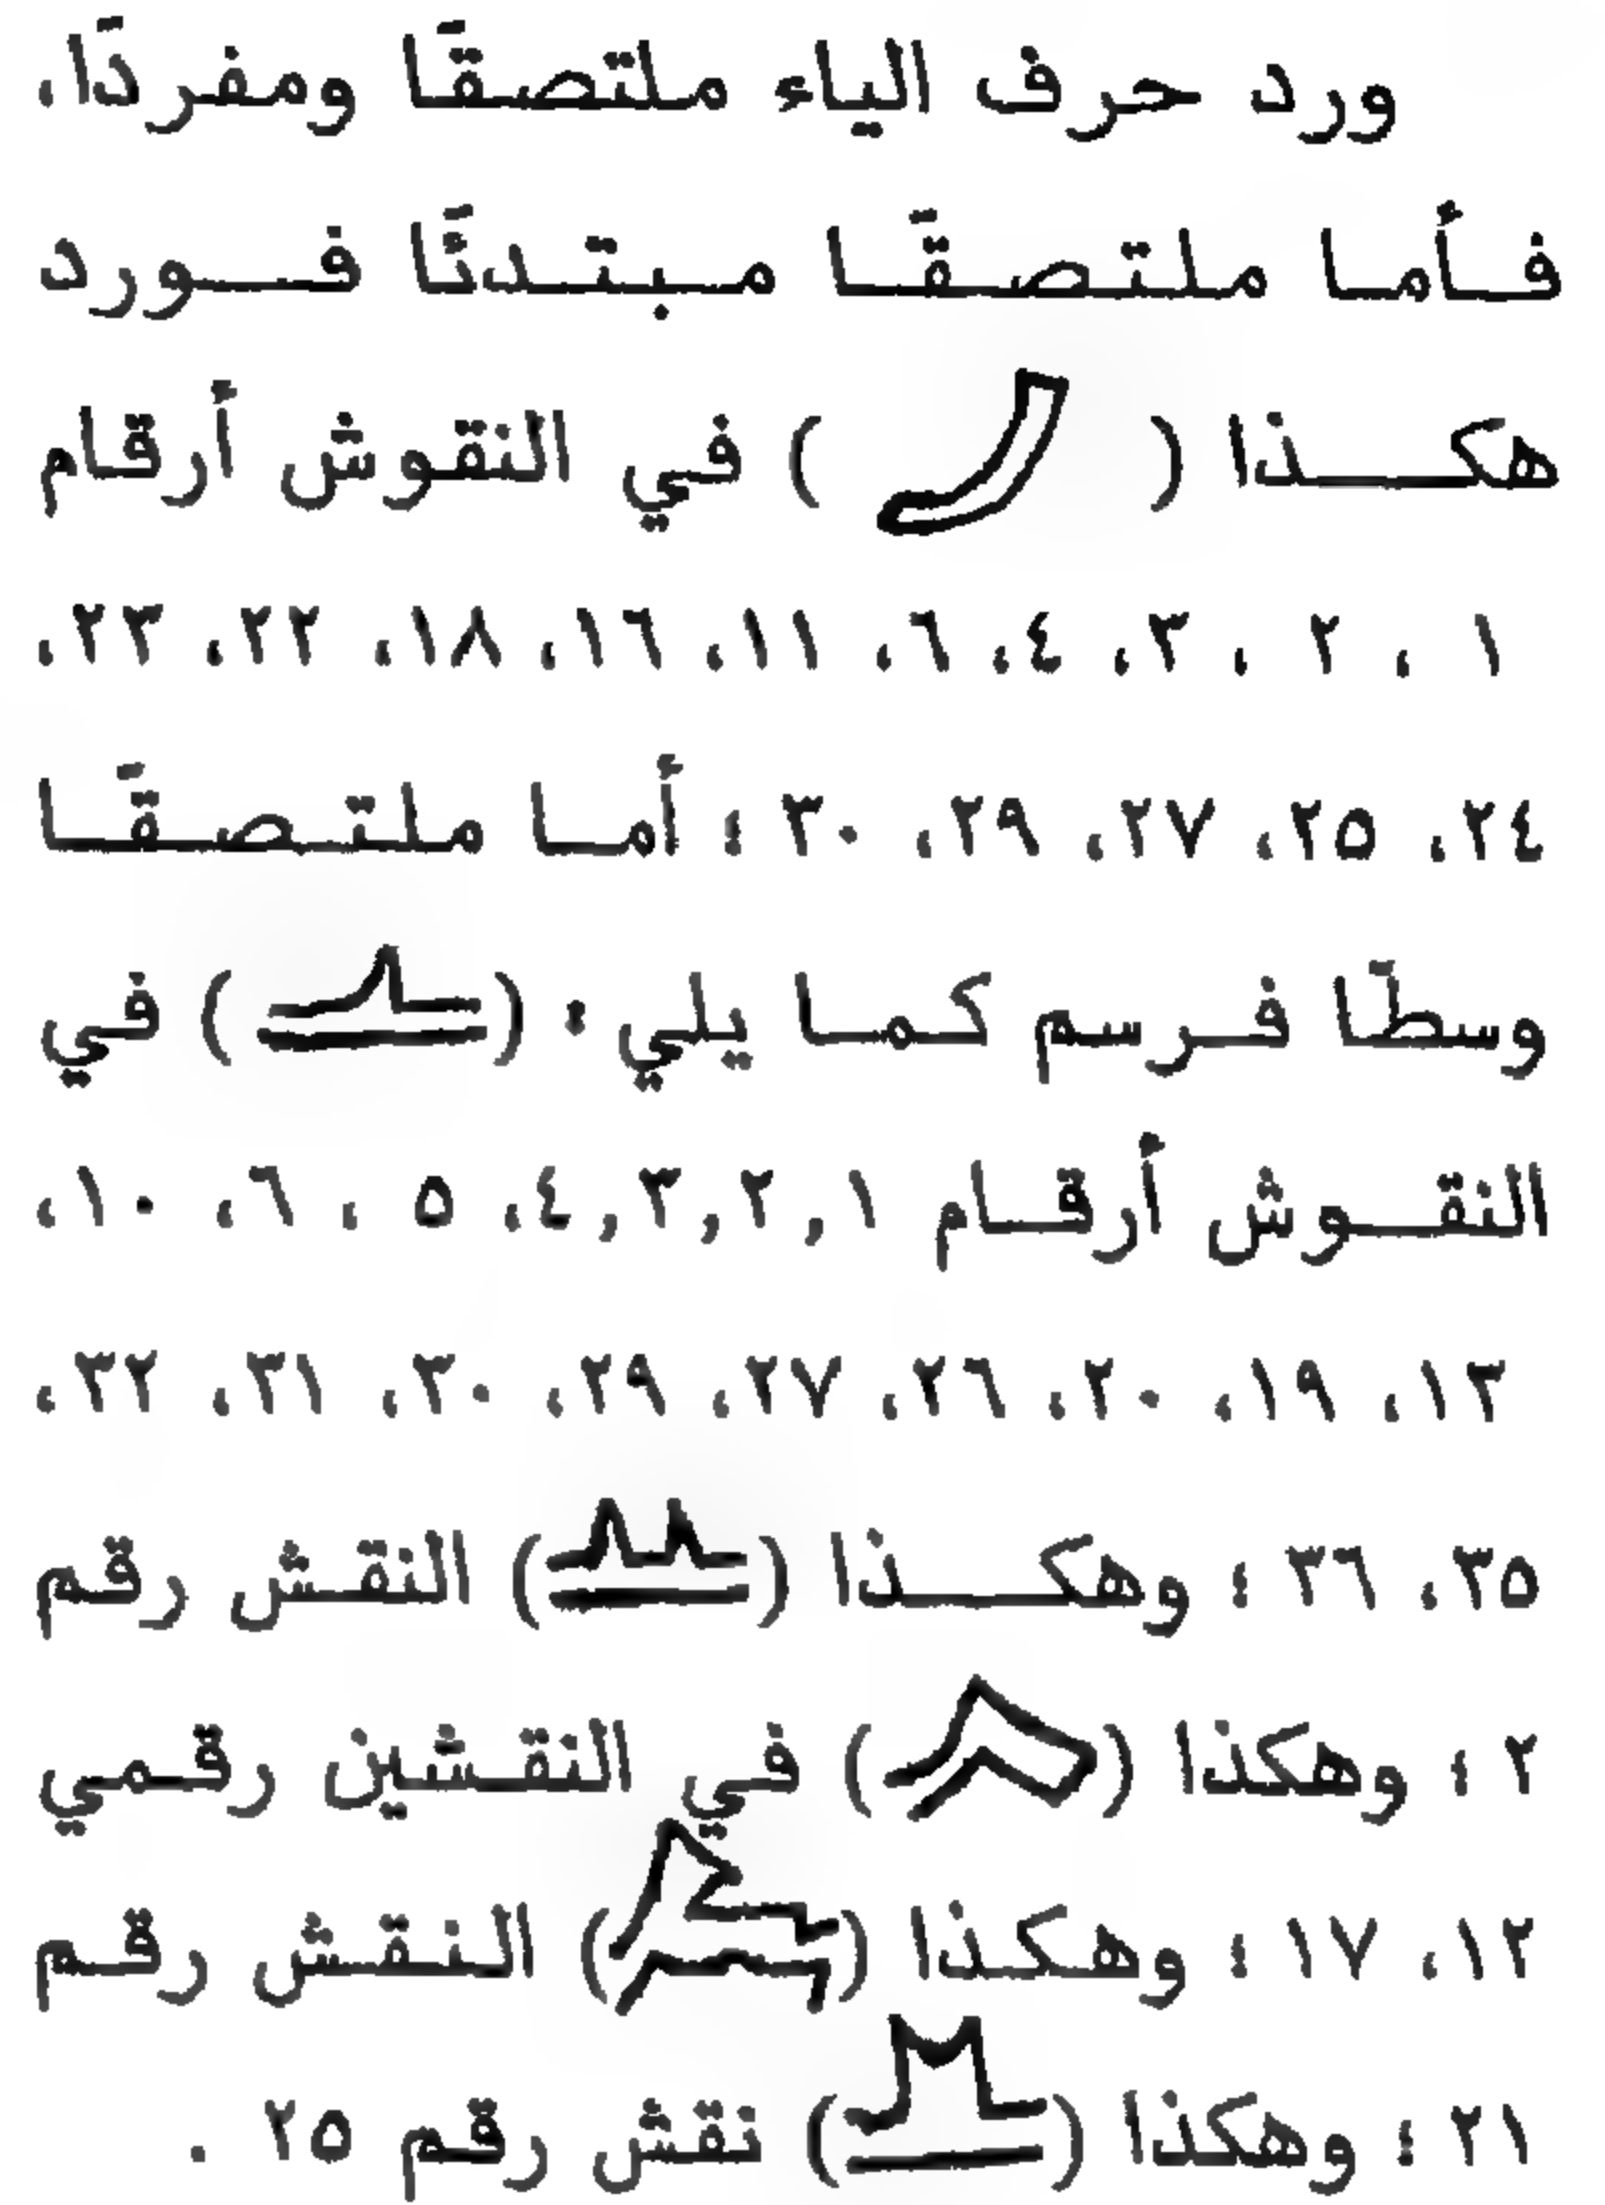 ورد حرف الياء ملتصقًا ومفردًا،
فأما ملتصقًا مبتدئًا فورد
هكذا ( ) في النقوش أرقام
١ ، ٢ ، ٣، ٤، ٦، ١١، ١٦، ١٨، ٢٢، ٢٣،
٢٤، ٢٥، ٢٧، ٢٩، ٣٠ ؛ أما ملتصقًا
وسطًا فرسم كما يلي : ( ) في
النقوش أرقام ١ , ٢ , ٣ , ٤، ٥ ، ٦، ١٠،
١٣، ١٩، ٢٠، ٢٦، ٢٧، ٢٩، ٣٠، ٣١، ٣٢،
٣٥، ٣٦ ؛ وهكذا ( ) النقش رقم
٢ ؛ وهكذا ( ) في النقشين رقمي
١٢، ١٧ ؛ وهكذا ( ) النقش رقم
٢١ ؛ وهكذا ( ) نقش رقم ٢٥ .